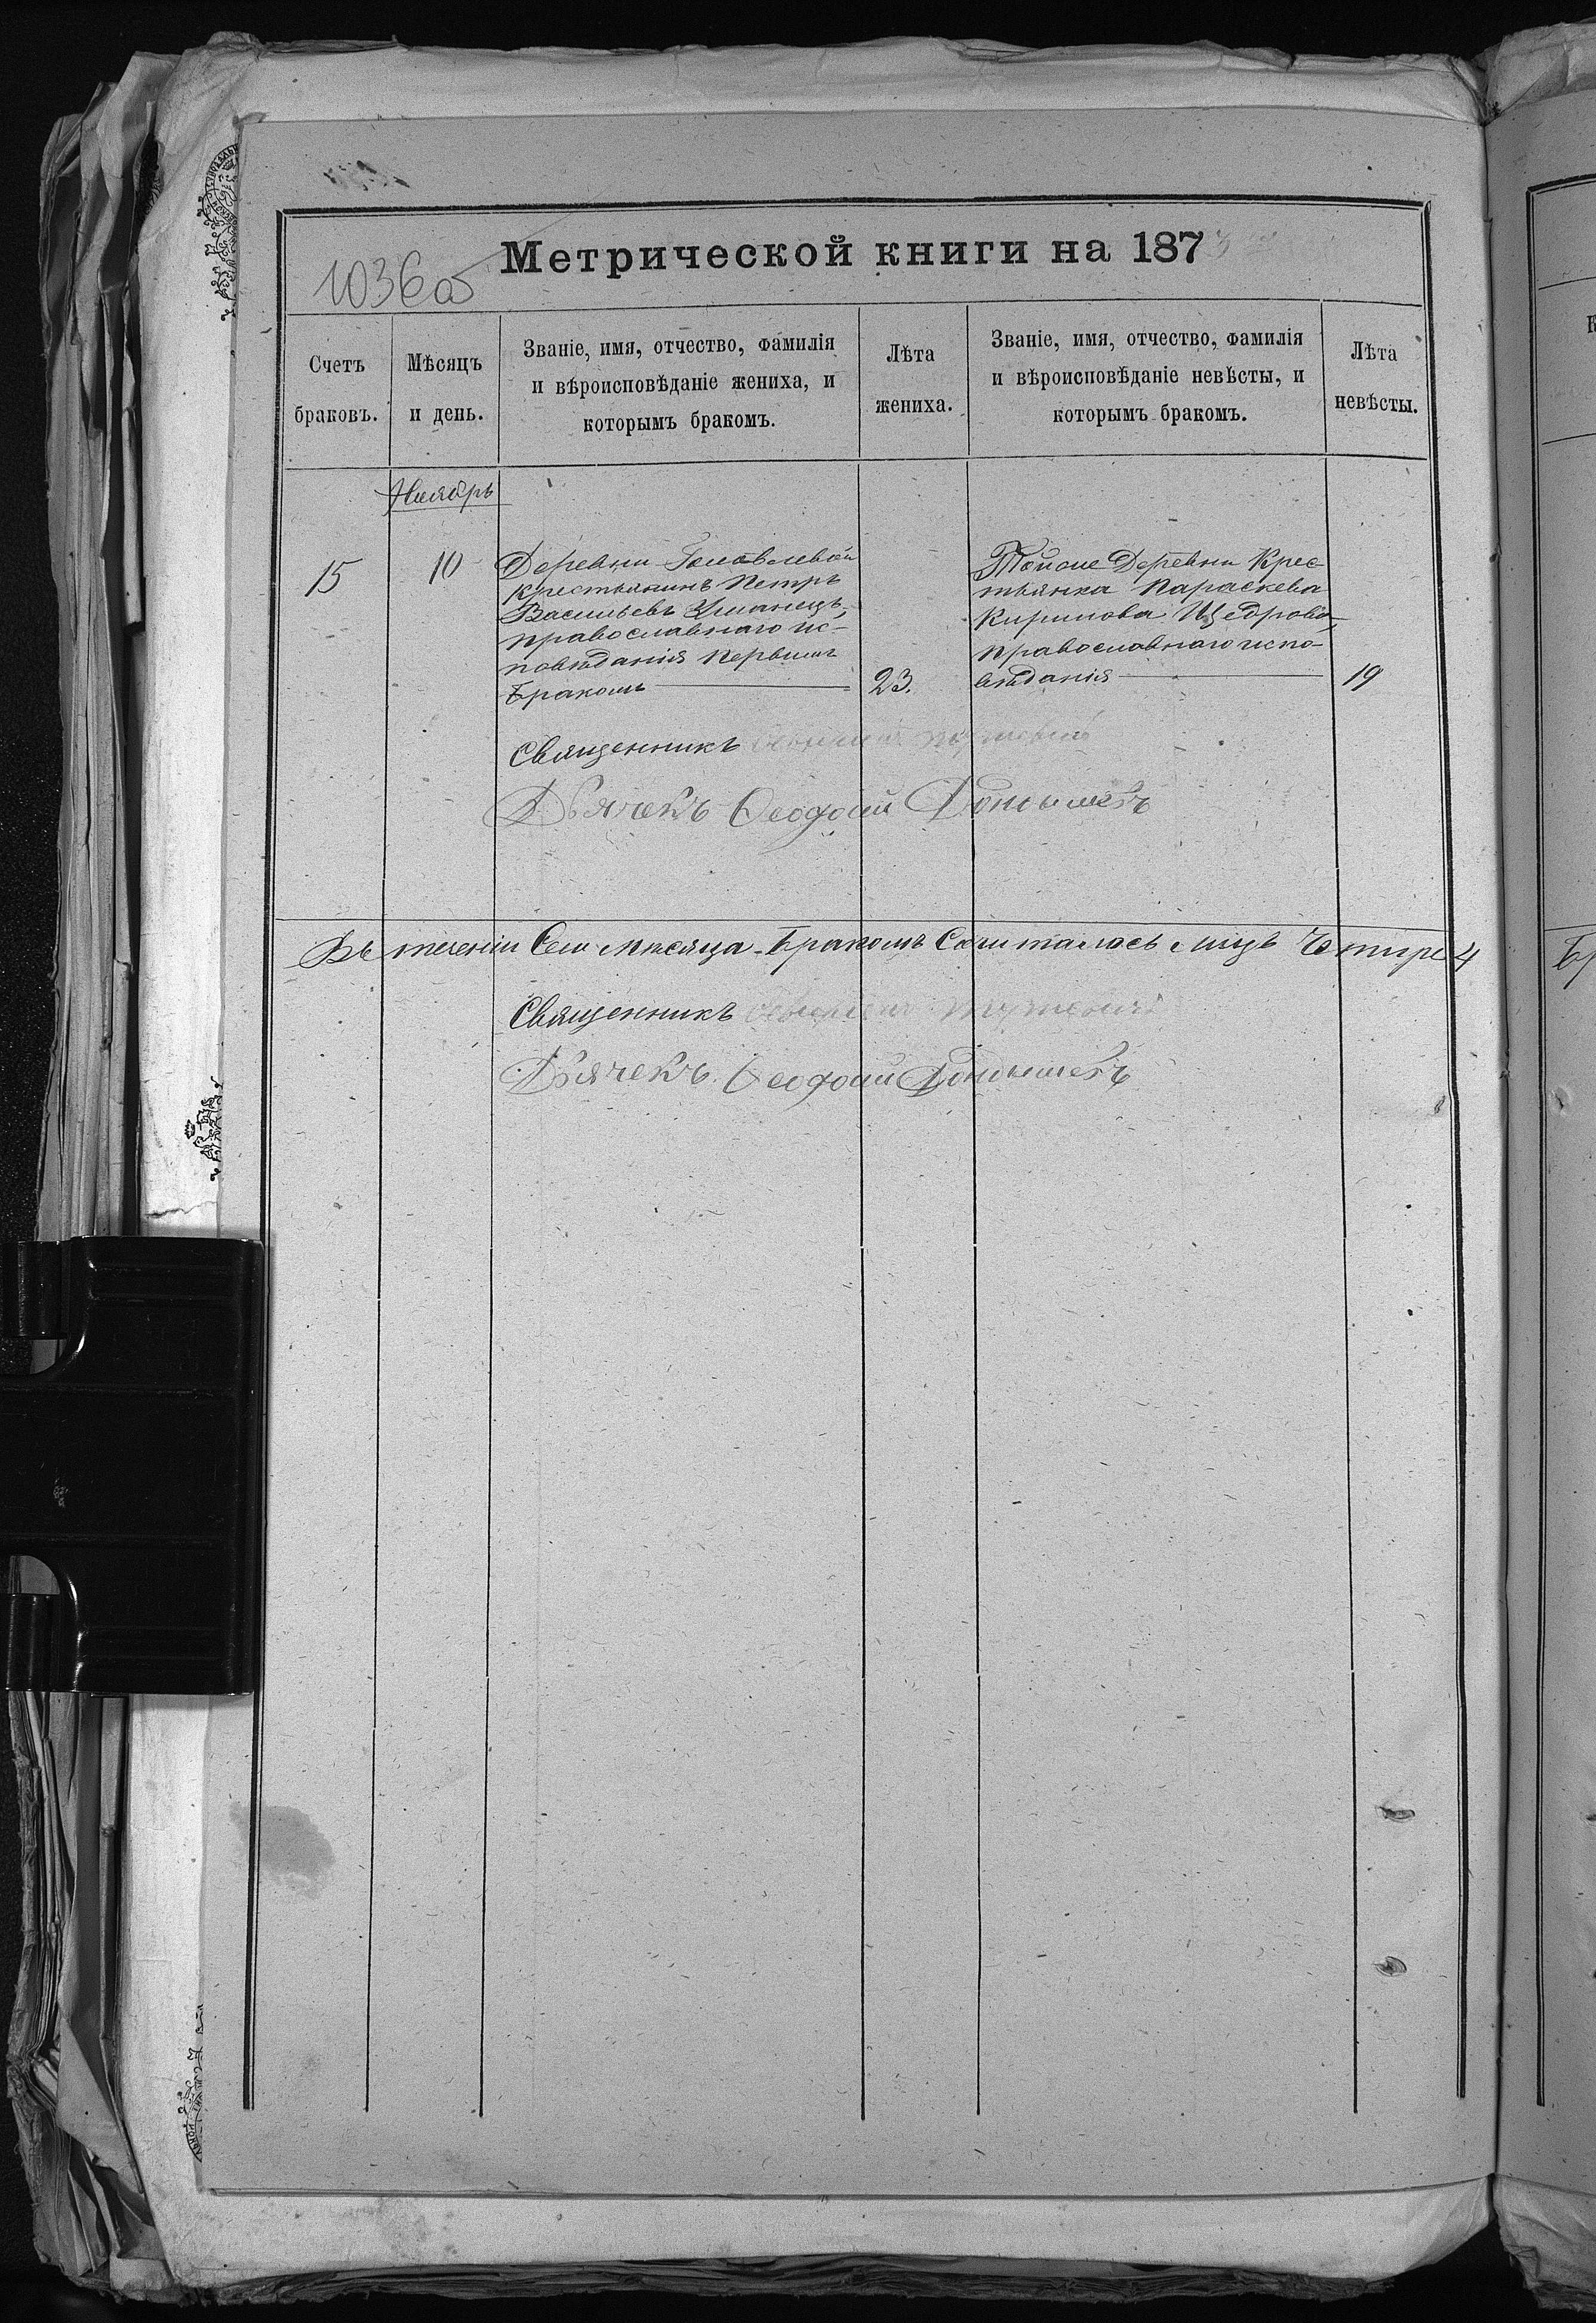 1036об
Метрической книги на 1873
Счетъ браковъ.
Мѣсяцъ и день.
Званіе, имя, отчество, фамилія
и вѣроисповѣданіе жениха, и
которымъ бракомъ.
Лѣта жениха.
Званіе, имя, отчество, фамилія
и вѣроисповѣданіе невѣсты, и
которымъ бракомъ.
Лѣта невѣсты.
Ноябрь
15
10
Деревни Головлевой
крестьянинъ Петръ
Васильевъ Уманецъ,
православнаго ис-
повѣданія первымъ
бракомъ
23.
Тойоже Деревни Крес-
тьянка Параскева
Кирилова Щедрова,
православнаго испо-
вѣданія
19
Священникъ
Дьячекъ Ѳеодосій
Въ теченіи Сего мѣсяца Бракомъ Сочиталось лицъ Четыре 4
Священникъ
Дьячекъ Ѳеодосій